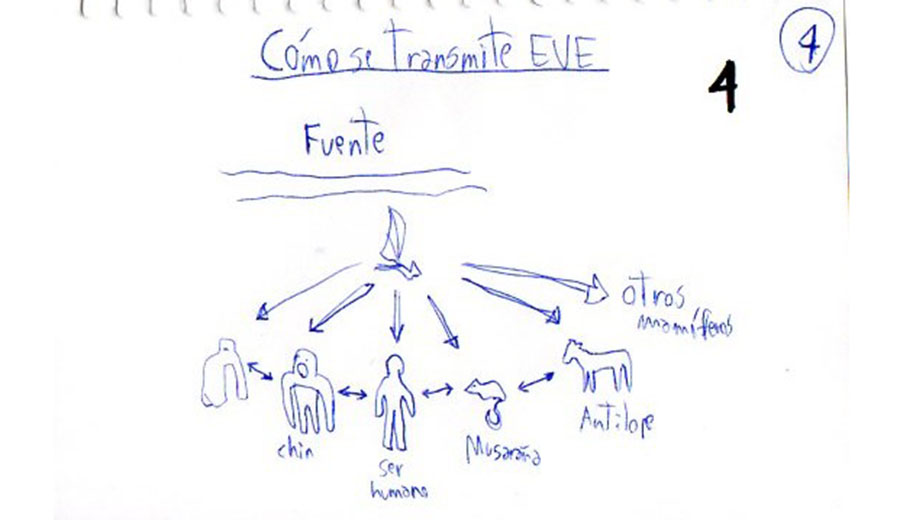 Cómo se transmite EVE
4
4
Fuente
otros
mamíferos
chin
ser
humano
Musaraña
Antílope